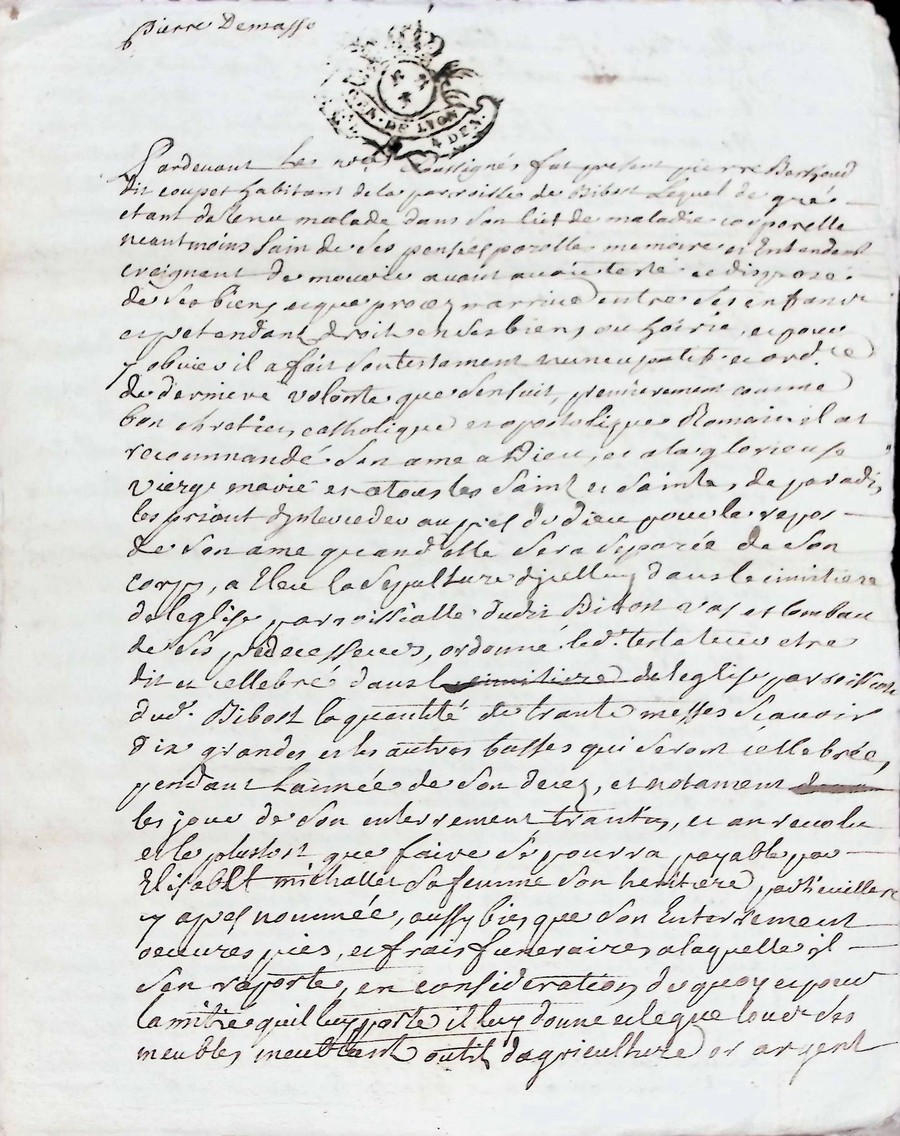 Pierre Demasse
GEN. DE LYON
4 DEN.
Pardevant Les no.res soussignés fut présent pierre Berthoud
dit coupet habitant de la parroisse de Bibost Lequel de gré
etant detenu malade dans son lict de maladie corporelle
neantmoins sain de ses pensées parolles memoire et Entendent
creignent de mourir avant avoir testé et disposé
de ses biens, et que procez n'arrive entre ses enfans
et pretendant droit en ses biens, ou hoirie, et pour
y obvier il a fait son testament nuncupatif et ord.ce
de derniere volonté que s'ensuit, premierement comme
bon chretien, catholique et apostolique Romain il at
recommandé son ame a Dieu, et a la glorieuse
vierge marie et a tous les Saint et Sainte, de paradis
les priant d'intercéder aupres de dieu pour le repos
de son ame quand elle sera separée de son
corps, a Eleu la sepulture d'jcelluy dans le cimitiere
de leglise parroissialle dudit Bibost vas et tombau
de ses predecesseurs, ordonné led. testateur etre
dit et cellebré dans le cimitiere de leglise parroissialle
dud. Bibost la quantité de trante messes scavoir
dix grandes et les autres basses qui seront cellebrée,
pendant L'année de son decez, et notament
les jour de son enterrement trantin, et an revolu
et le plustost que faire se pourra payable par
Elizabet michallet sa femme son heritiere particulliere
y apres nommée, aussy bien que son Enterrement
oeuvres pies, et frais funeraires a laquelle il
s'en raporte, en consideration de quoy et pour
lamitié qu'il luy porte il luy donne et legue tous ses
meubles meublant outils dagriculture or argent